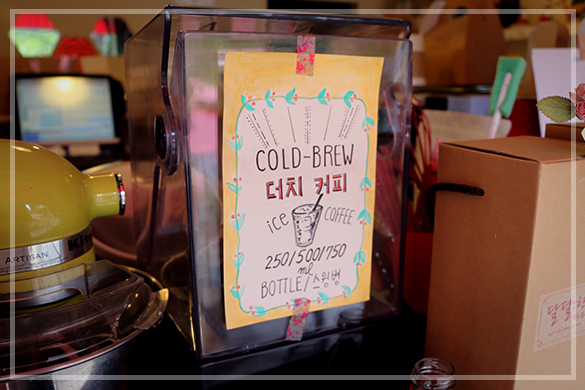 COLD-BREW
더치 커피
ice COFFEE
250/500/750
ml
BOTTLE/스윙병
ARTISAN